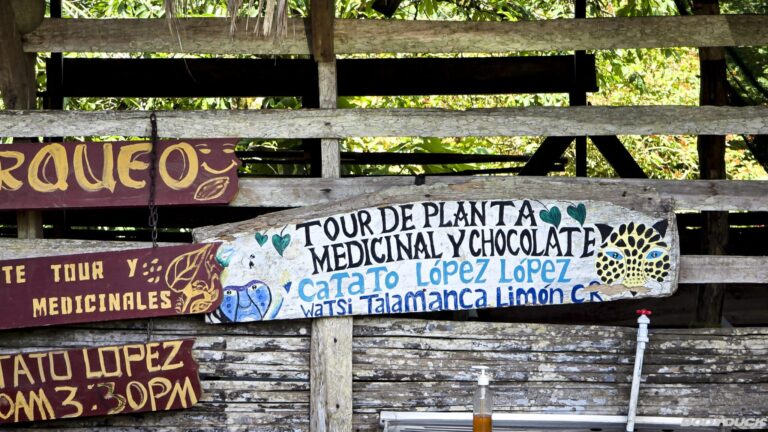 RQUEO
TE TOUR Y
MEDICINALES
TATO LOPEZ
0AM 3:30PM
TOUR DE PLANTA
MEDICINAL Y CHOCOLATE
CATATO LÓPEZ LÓPEZ
WATSI TALAMANCA LIMÓN CR
BODYDUCK